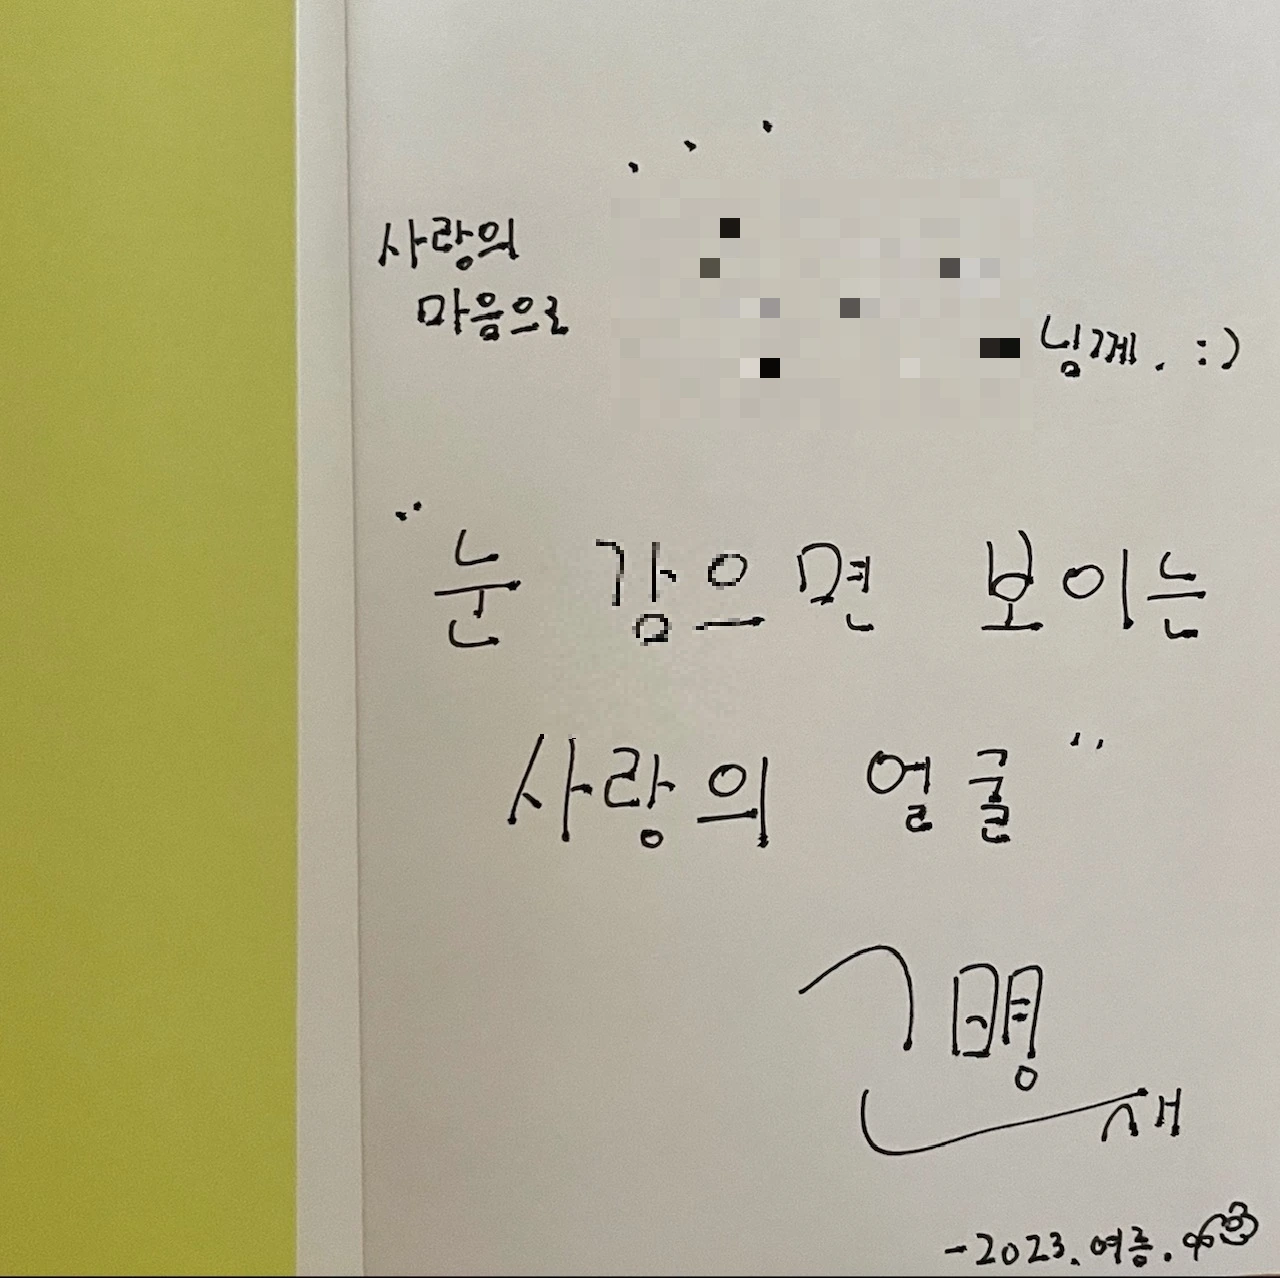 사랑의
마음으로
님께. :)
"눈 감으면 보이는
사랑의 얼굴"
- 2023. 여름.